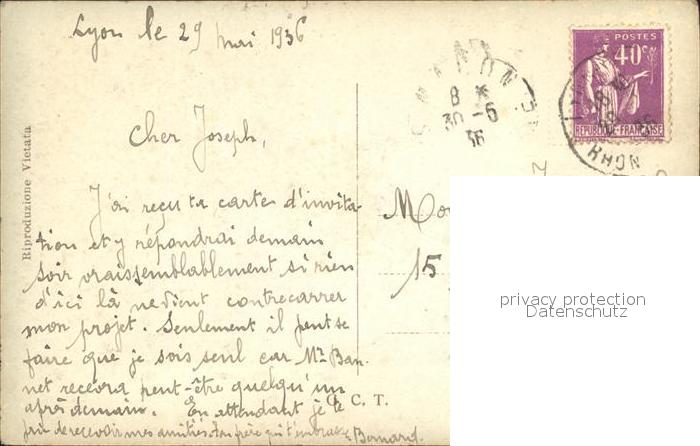 Lyon le 29 mai 1936
Cher Joseph,
J'ai reçu ta carte d'invita-
tion et y répondrai demain
soir vraissemblablement si rien
d'ici là ne vient contrecarrer
mon projet. Seulement il peut se
faire que je sois seul car Mr Ban-
net recevra peut-être quelqu'un
après demain. En attendant je te
prie de recevoir mes amitiés. Ton frère qui t'embrasse Bernard.
Riproduzione Vietata
C. T.
POSTES
40c
REPUBLIQUE FRANÇAISE
8
30-6
36
RHON
15
privacy protection
Datenschutz